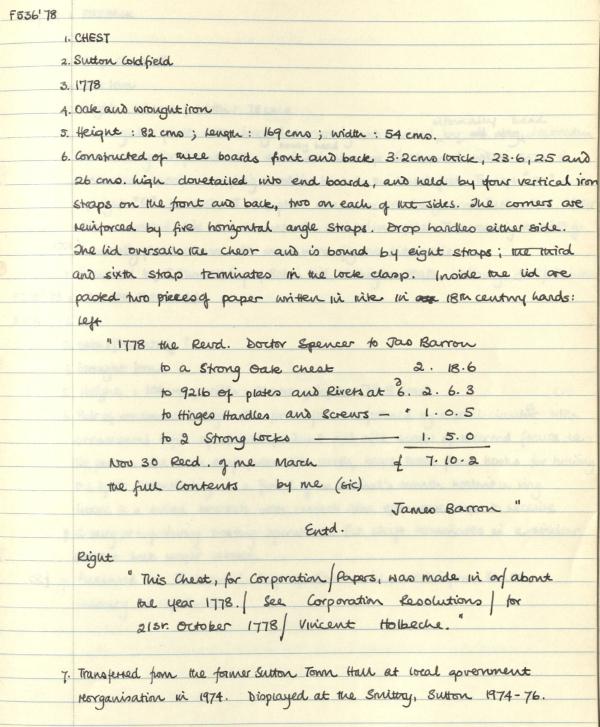 F536'78
1. CHEST
2. Sutton Coldfield
3. 1778
4. Oak and wrought iron
5. Height : 82 cms ; Length : 169 cms ; Width : 54 cms.
6. Constructed of three boards front and back 3.2cms thick, 23.6, 25 and
26 cms. high dovetailed into end boards, and held by four vertical iron
straps on the front and back, two on each of the sides. The corners are
reinforced by five horizontal angle straps. Drop handles either side.
The lid oversails the chest and is bound by eight straps ; the third
and sixth strap terminates in the lock clasp. Inside the lid are
pasted two pieces of paper written in ink in 18th century hands:
Left
"1778 the Revd. Doctor Spencer to Jas Barron
to a Strong Oake Chest 2. 18. 6
to 92lb of plates and Rivets at 6d. 2. 6. 3
to Hinges Handles and Screws — " 1. 0. 5
to 2 Strong Locks 1. 5. 0
Nov 30 Recd. of me March £ 7. 10. 2
the full Contents by me (sic)
James Barron "
Entd.
Right
" This Chest, for Corporation/Papers, was made in or/about
the year 1778./ See Corporation Resolutions/ for
21st. October 1778/ Vincent Holbeche. "
7. Transferred from the former Sutton Town Hall at local government
reorganisation in 1974. Displayed at the Smithy, Sutton 1974-76.